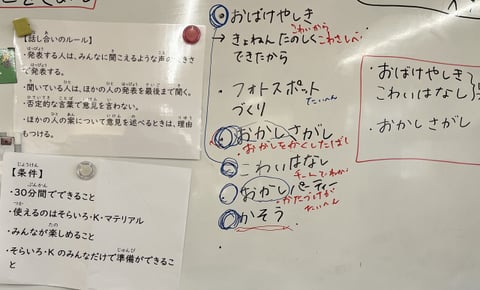 【話し合いのルール】
・発表する人は、みんなに聞こえるような声の大きさ
で発表する。
・聞いている人は、ほかの人の発表を最後まで聞く。
・否定的な言葉で意見を言わない。
・ほかの人の案について意見を述べるときは、理由
もつける。
【条件】
・30分間でできること
・使えるのはそらいろ・K・マテリアル
・みんなが楽しめること
・そらいろ・Kのみんなだけで準備ができるこ
と
おばけやしき
こわいから
→きょねんたのしく
できたから
・フォトスポット
づくり
たいへん
おかしさがし
おかしをかくしたばしょ
こわいはなし
おかしパーティー
かたづけが
たいへん
かそう
・
・おばけやしき
こわいはなし
・おかしさがし